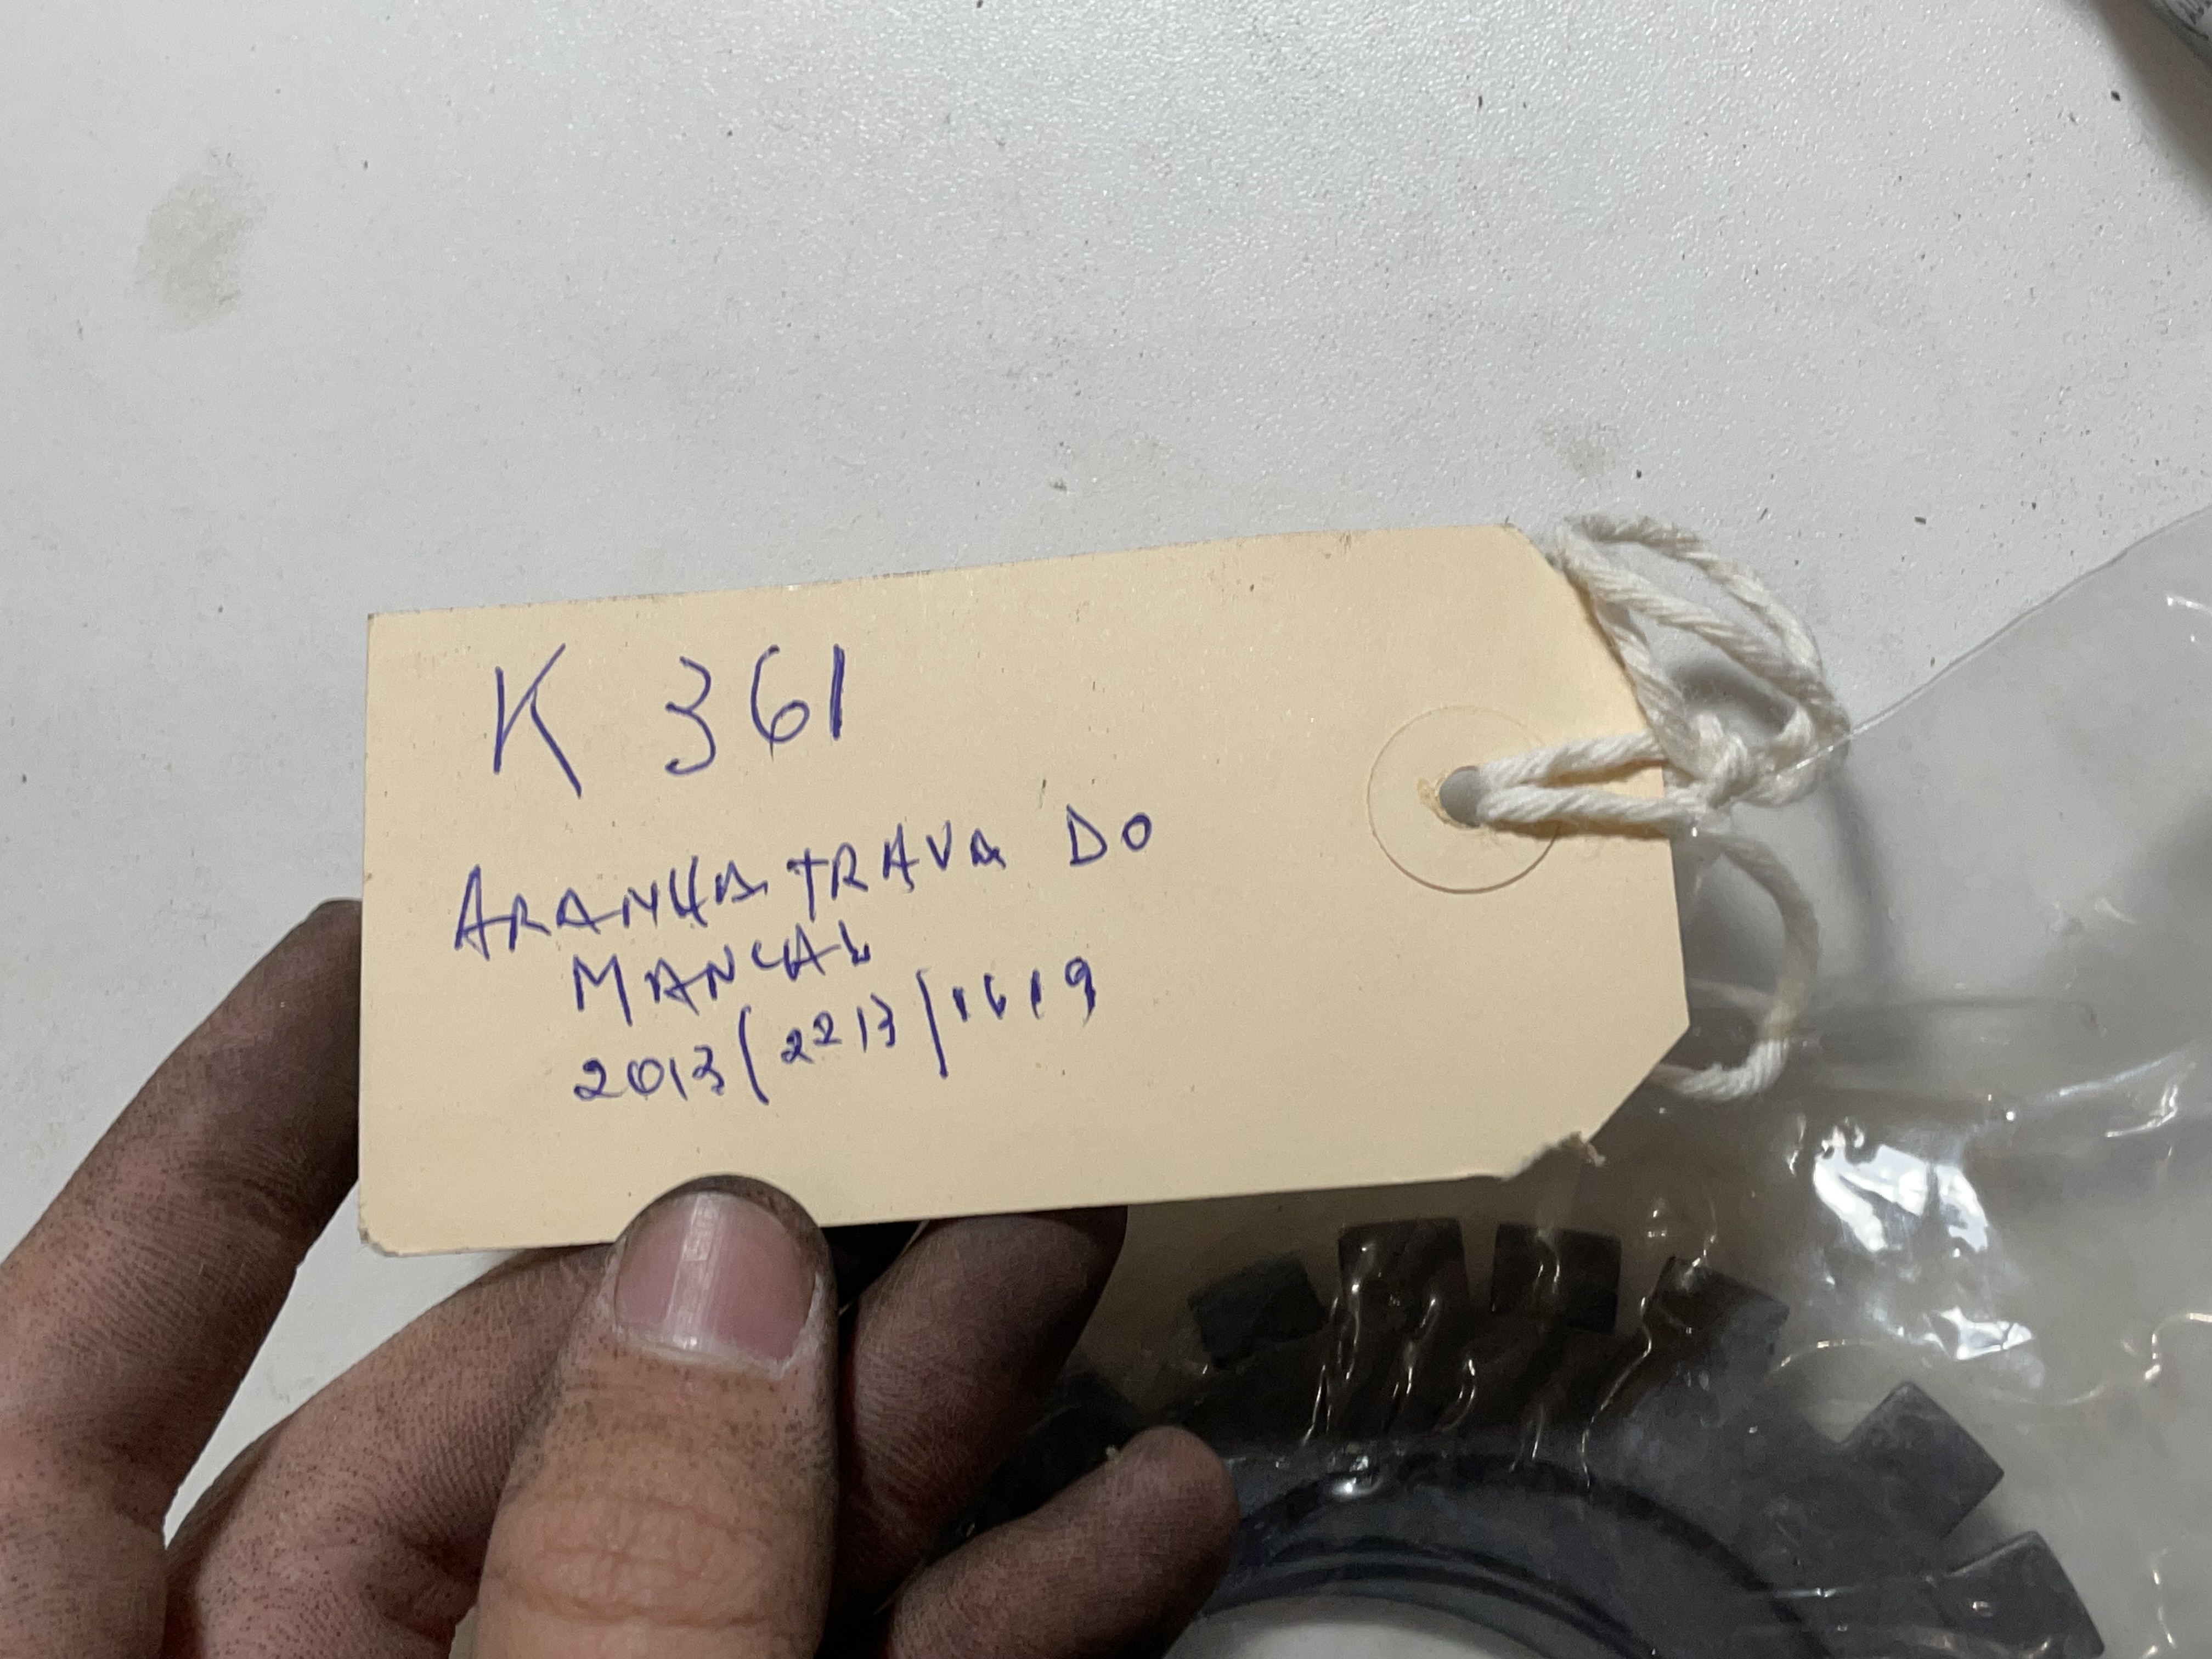 K 361
ARANHA TRAVA DO
MANCAL
2013/2213/1619